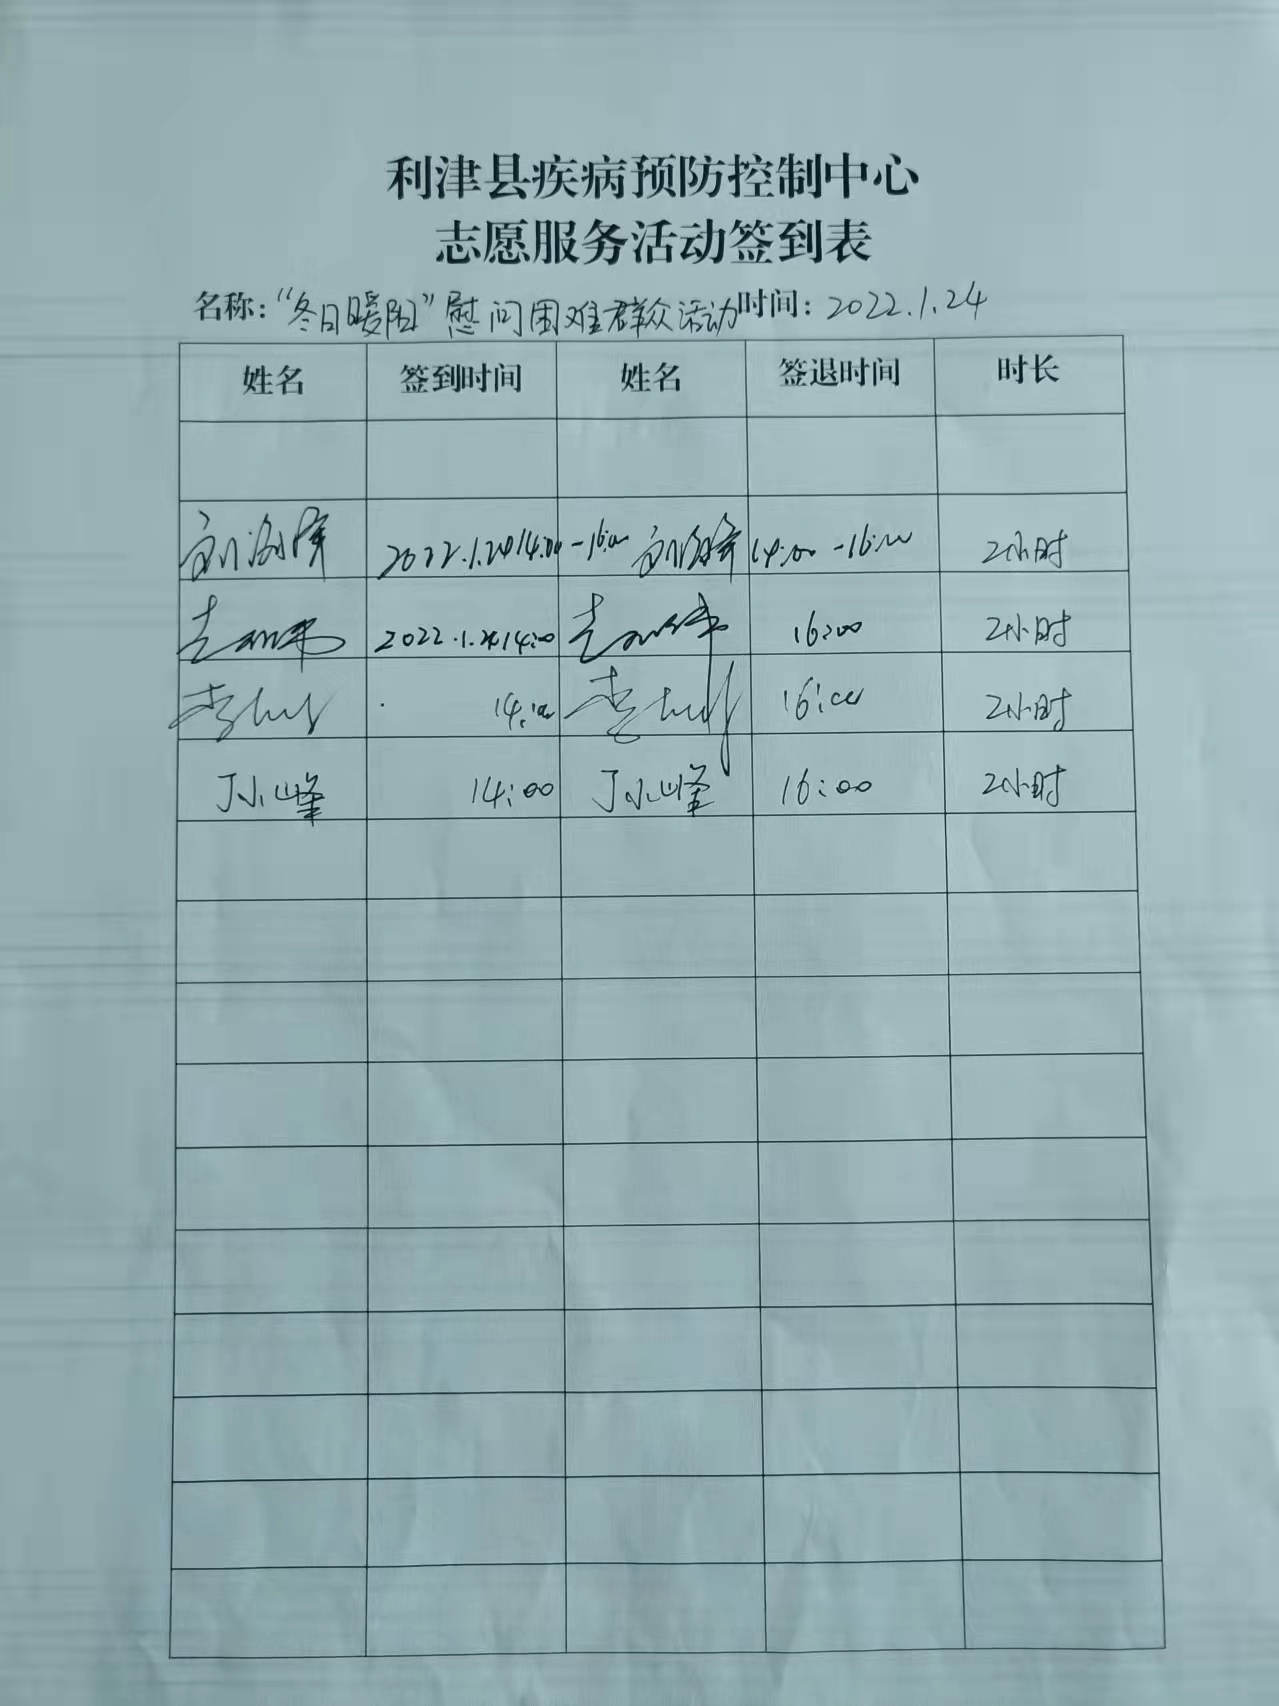 利津县疾病预防控制中心
志愿服务活动签到表
名称：“冬日暖阳”慰问困难群众活动时间：2022.1.24
姓名 签到时间 姓名 签退时间 时长
2022.1.24 14:00-16:00 14:00-16:00 2小时
2022.1.24 14:00 16:00 2小时
14:00 16:00 2小时
丁小峰 14:00 丁小峰 16:00 2小时